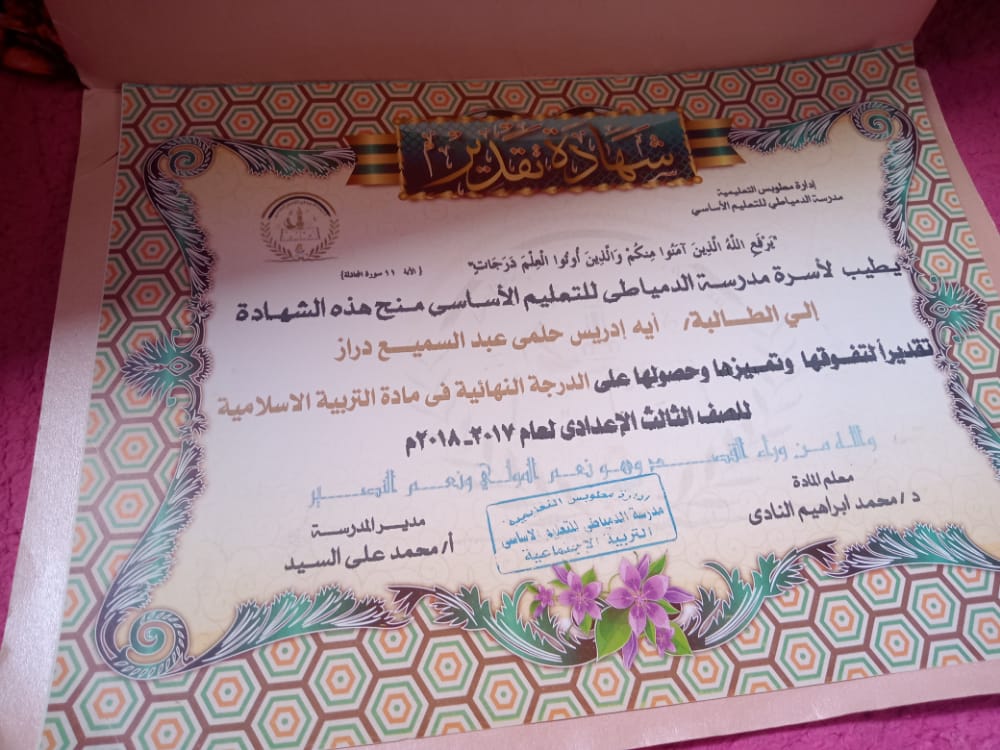 شهادة تقدير
إدارة مطوبس التعليمية
مدرسة الدمياطي للتعليم الأساسي
"يَرْفَعِ اللهُ الَّذِينَ آمَنُوا مِنكُمْ وَالَّذِينَ أُوتُوا الْعِلْمَ دَرَجَاتٍ"
(الآية ١١ سورة المجادلة)
يطيب لأسرة مدرسة الدمياطى للتعليم الأساسى منح هذه الشهادة
إلي الطالبة/ أيه إدريس حلمى عبد السميع دراز
تقديراً لتفوقها وتميزها وحصولها على الدرجة النهائية فى مادة التربية الاسلامية
للصف الثالث الإعدادى لعام ٢٠١٧-٢٠١٨م
والله من وراء القصد وهو نعم المولي ونعم النصير
معلم المادة
د/ محمد ابراهيم النادى
مدير المدرسة
أ/ محمد على السيد
مطوبس التعليمية
مدرسة الدمياطى للتعليم الاساسى
التربية الإجتماعية